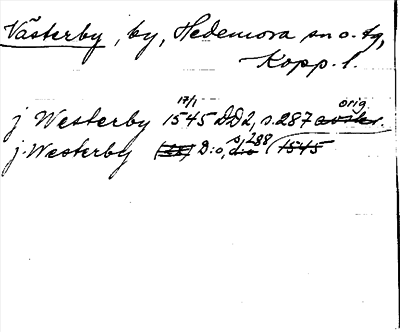 Västerby, by, Hedemora sn o. tg,
Kopp. l.
17/1 orig.
j Westerby 1545 DD2, s. 287 avskr.
j. Westerby D:o, s. 288 d:o (1545